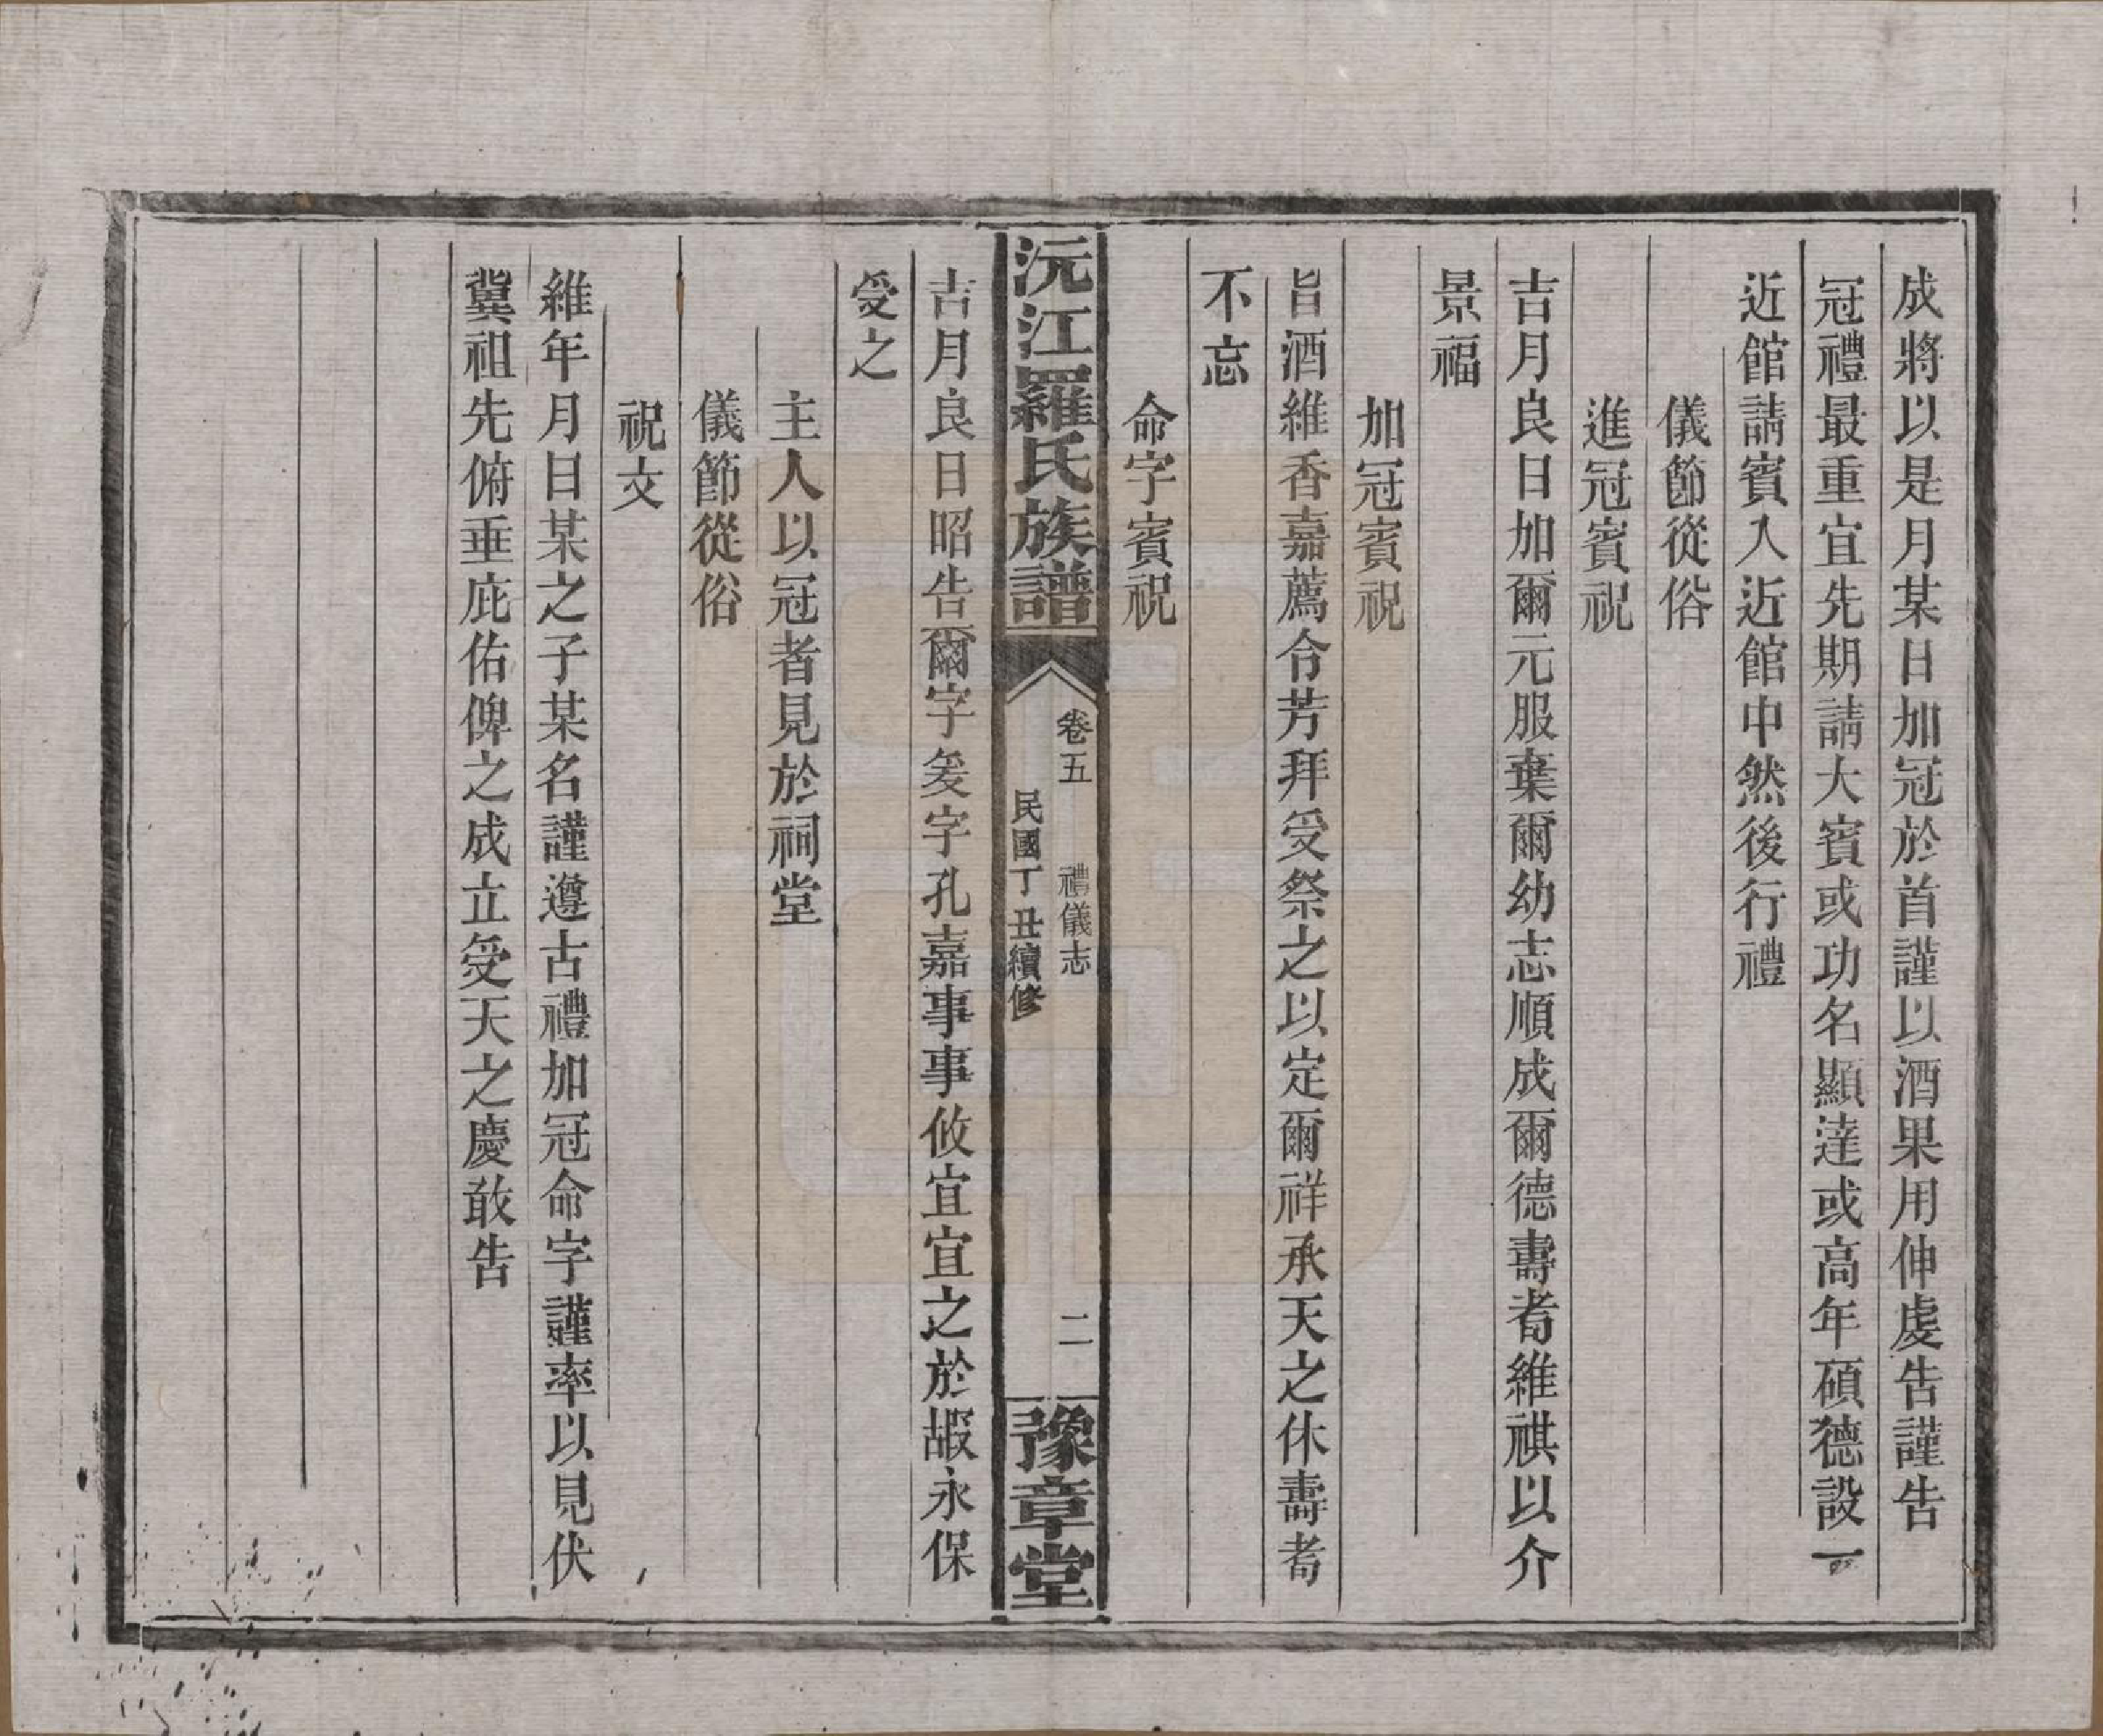 成將以是月某日加冠於首謹以酒果用伸虔告謹告
冠禮最重宜先期請大賓或功名顯達或高年碩德設一
近館請賓入近館中然後行禮
儀節從俗
進冠賓祝
吉月良日加爾元服棄爾幼志順成爾德壽耈維祺以介
景福
加冠賓祝
旨酒維香嘉薦令芳拜受祭之以定爾祥承天之休壽耈
不忘
命字賓祝
沅江羅氏族譜
卷五
禮儀志
二
民國丁丑續修
豫章堂
吉月良日昭告爾字爰字孔嘉事事攸宜宜之於嘏永保
受之
主人以冠者見於祠堂
儀節從俗
祝文
維年月日某之子某名謹遵古禮加冠命字謹率以見伏
冀祖先俯垂庇佑俾之成立受天之慶敢告